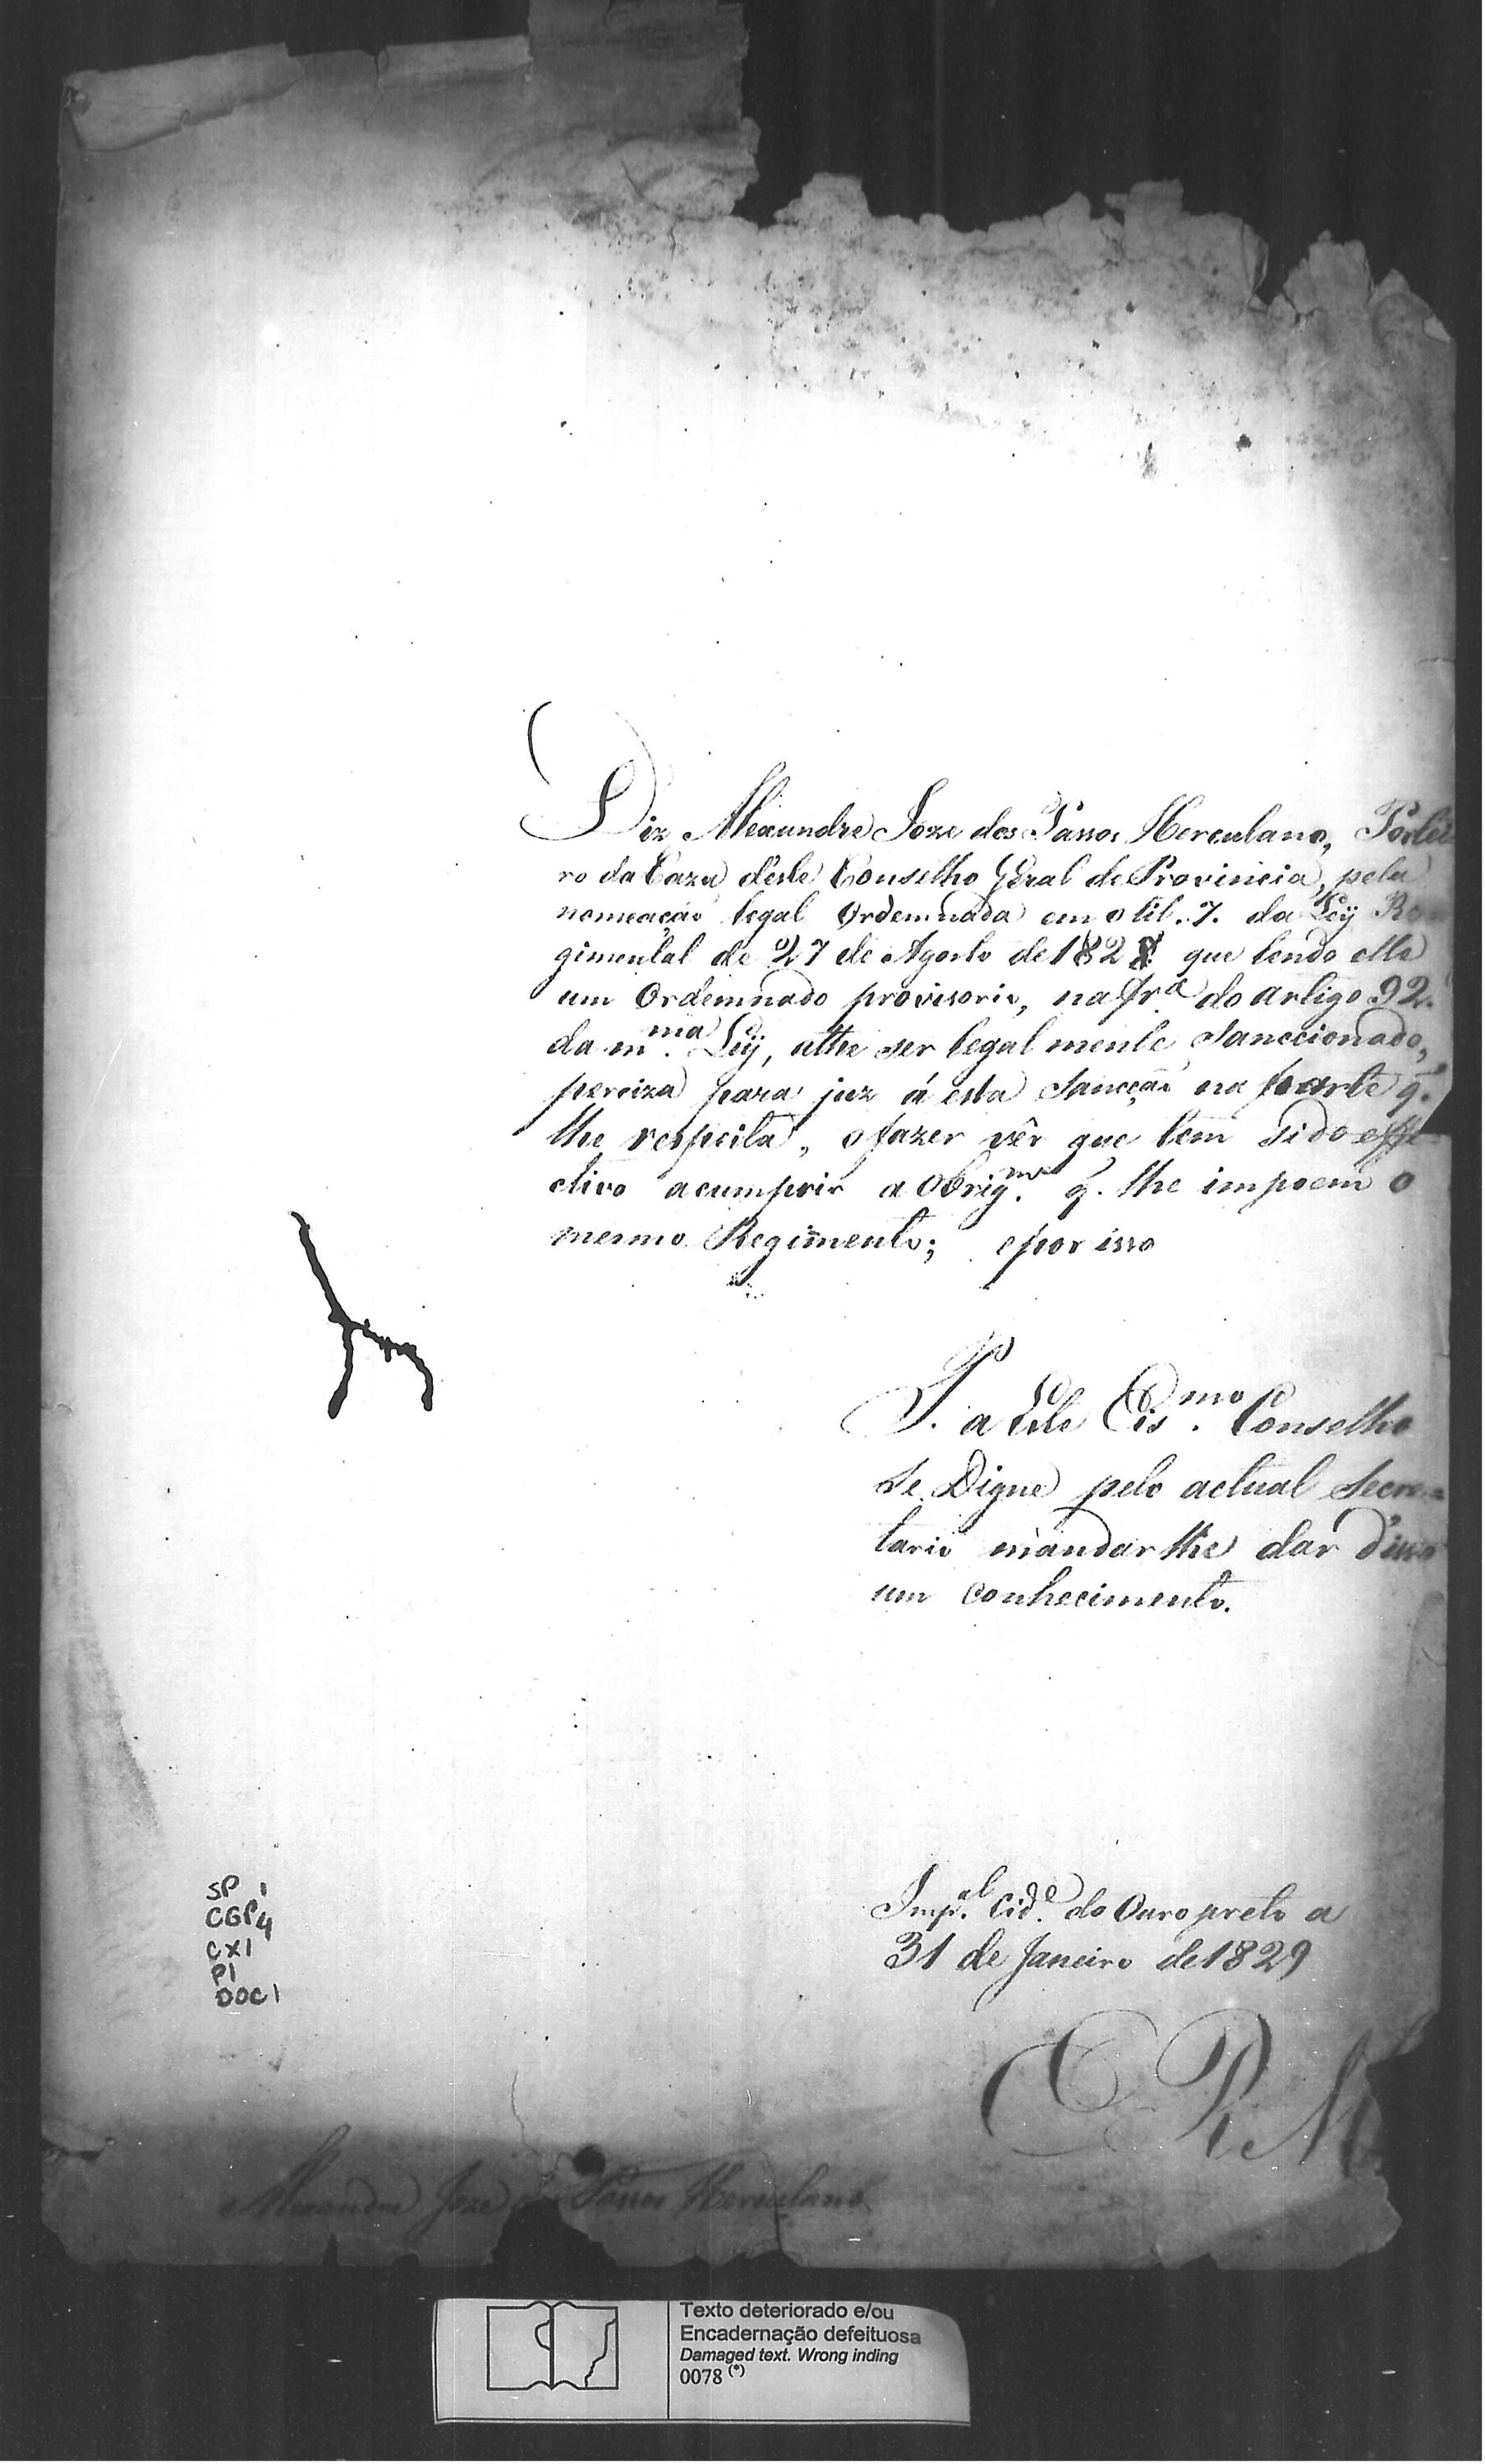 Diz Alexandre Joze dos Passos Herculano, Portei
ro da Caza d'este Conselho Geral de Provincia, pela
nomeação legal Ordemnada em o tit. 7. da Ley Re
gimental de 27 de Agosto de 1828. que tendo elle
um Ordemnado provisorio, na fr.ª do artigo 92.
da m.ma Ley, athe ser legal mente Sanccionado,
perciza para juz á esta Sancção na parte q.
lhe respeita, o fazer vêr que tem sido effe
ctivo a cumprir a Obrig.m q. lhe impoem o
mesmo Regimento; e por isso
P. a Este Ex.mo Conselho
Se Digne pelo actual Secre-
tario mandar lhe dar d'isso
um conhecimento.
Imp.al Cid.e do Ouro preto a
31 de Janeiro de 1829
E R M
Alexandre Joze dos Passos Herculano
SP 1
CGP4
CX1
P1
DOC1
Texto deteriorado e/ou
Encadernação defeituosa
Damaged text. Wrong inding
0078 (*)